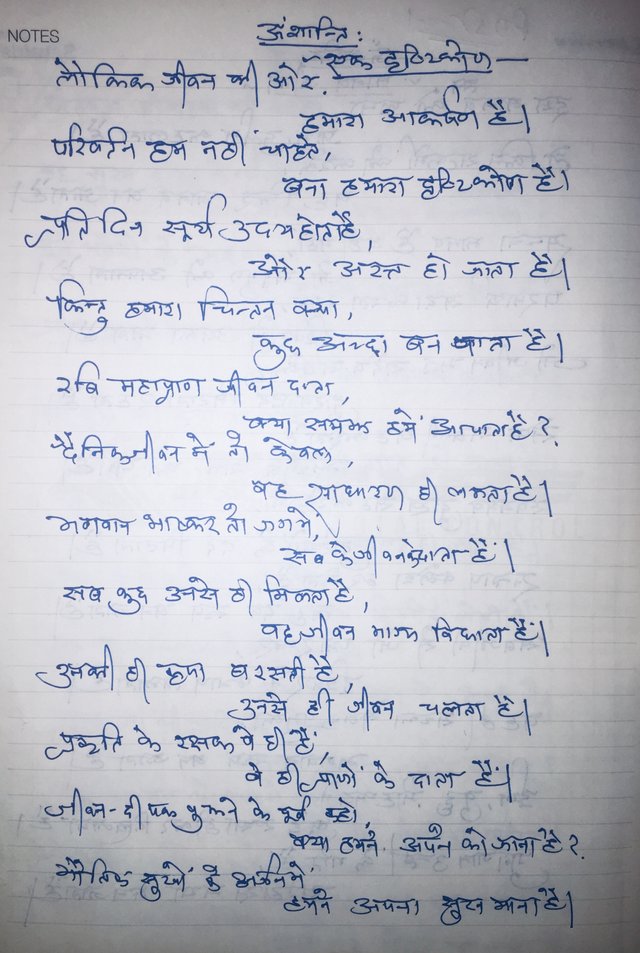 NOTES
अंशान्ति:
एक दृष्टिकोण —
लौकिक जीवन की ओर,
हमारा आकर्षण है।
परिवर्तन हम नहीं चाहते,
बना हमारा दृष्टिकोण है।
प्रतिदिन सूर्य उदय होता है,
और अस्त हो जाता है।
किन्तु हमारा चिन्तन क्या,
कुछ अच्छा बन पाता है।
रवि महाप्राण जीवन दाता,
क्या समझ हमें आ पाता है?
दैनिक जीवन में तो केवल,
वह साधारण ही लगता है।
भगवान भाष्कर तो जग में,
सब के जीवन के दाता हैं।
सब कुछ उनसे ही मिलता है,
वह जीवन भाग्य विधाता हैं।
उनकी ही कृपा बरसती है,
उनसे ही जीवन चलता है।
प्रकृति के रक्षक वे ही हैं,
वे ही प्राणों के दाता हैं।
जीवन-दीपक बुझने के पूर्व कहो,
क्या हमने अपने को जाना है?
भौतिक सुखों के अर्जन में
हमने अपना सुख माना है।